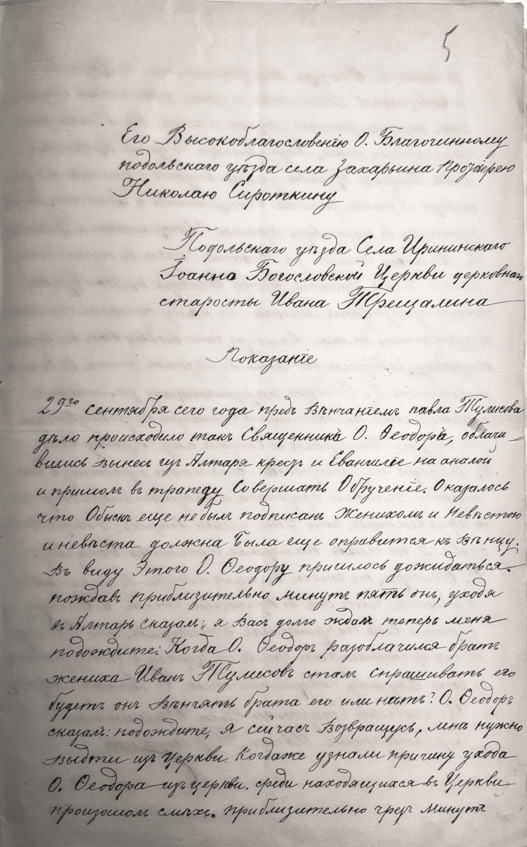 5
Его Высокоблагословенію О. Благочинному
подольскаго уѣзда села Захарьина Іерею
Николаю Сироткину
Подольскаго уѣзда Села Ирининскаго
Іоанно Богословской Церкви церковнаго
старосты Ивана Трещалина
Показаніе
29го сентября сего года предъ Вѣнчаніемъ павла Тулисова
дѣло происходило такъ Священникъ О. Ѳеодоръ, облачи
вшись вынес изъ Алтаря крестъ и Евангиліе на аналой
и пришолъ въ трапеду Совершать Обрученіе. Оказалось
что Обыскъ еще не былъ подписанъ Женихомъ и Невѣстою
и невѣста должна была еще оправится къ Вѣнцу.
Въ виду Этого О. Ѳеодору пришлось дожидаться.
пождавъ приблизительно минутъ пять онъ, уходя
въ Алтарь сказалъ: я Васъ долго ждалъ теперь меня
подождите. Когда О. Ѳеодоръ разоблачился братъ
жениха Иванъ Тулисовъ сталъ спрашивать его
будетъ онъ Вѣнчать брата его или нѣтъ? О. Ѳеодоръ
сказалъ: подождите, я сейчасъ Возвращусь, мнѣ нужно
выдти изъ Церкви. Когдаже узнали причину ухода
О. Ѳеодора изъ церкви. среди находящихся въ Церкви
произошолъ смѣхъ. приблизительно чрезъ минутъ